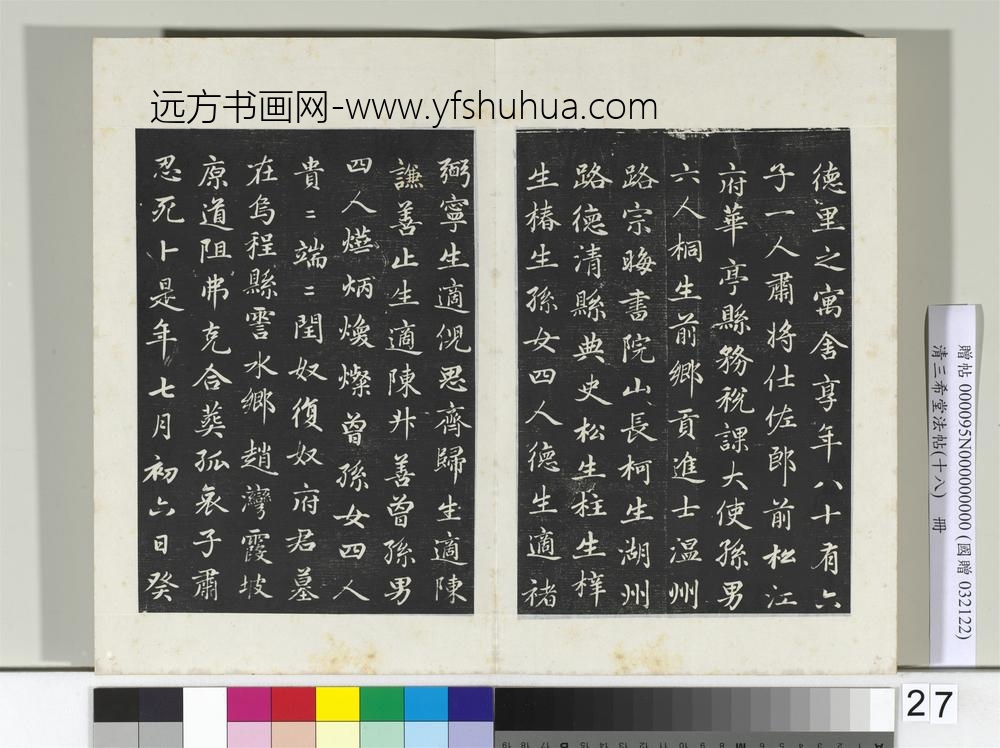 远方书画网-www.yfshuhua.com
德里之寓舍享年八十有六
子一人肅將仕佐郎前松江
府華亭縣務税課大使孫男
六人桐生前鄉貢進士温州
路宗晦書院山長柯生湖州
路德清縣典史松生柱生梓
生椿生孫女四人德生適禇
弼寧生適倪思齊歸生適陳
謙善止生適陳廾善曽孫男
四人爃炳煥燦曽孫女四人
貴〻端〻閏奴復奴府君墓
在烏程縣霅水鄉趙灣霞坡
原道阻弗克合葬孤哀子肅
忍死卜是年七月初六日癸
贈帖 000095N000000000 (國贈 032122)
清三希堂法帖(十八) 冊
27